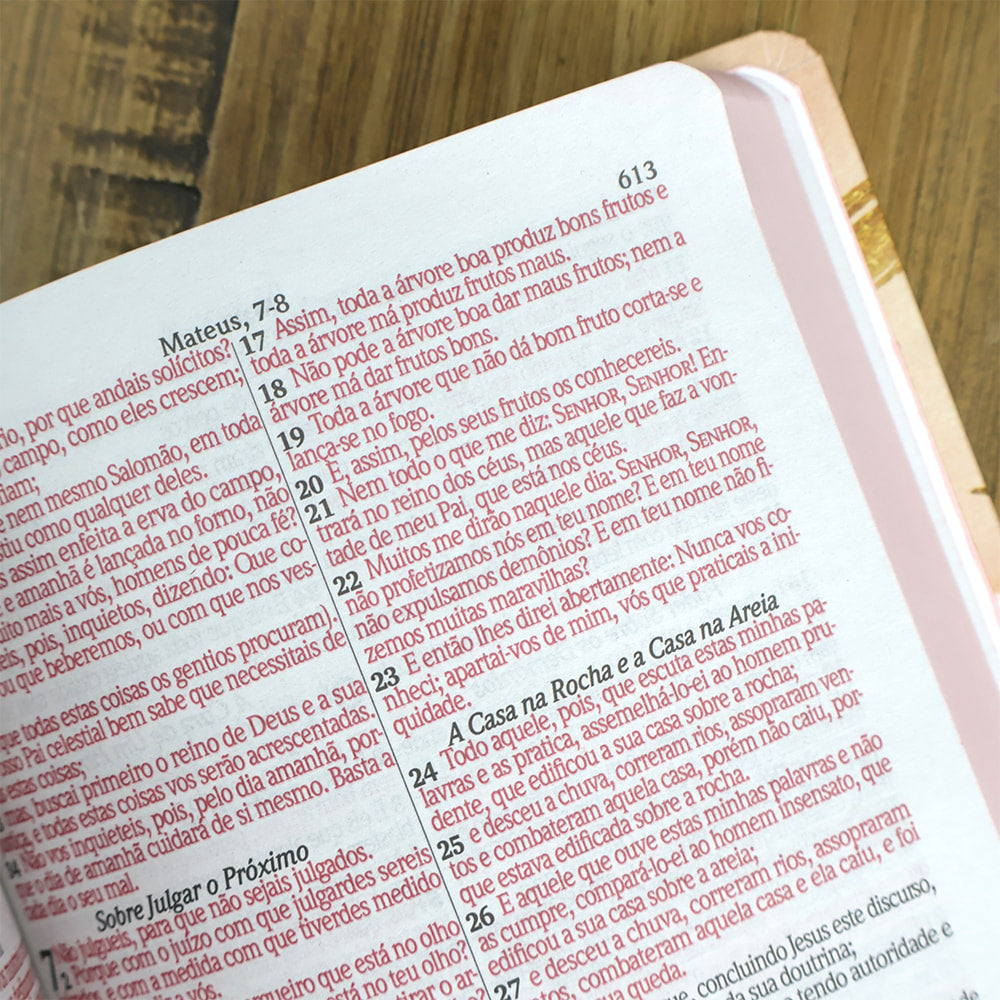 Mateus, 7-8
613
rio, por que andais solícitos?
campo, como eles crescem;
fiam;
e nem mesmo Salomão, em toda
stiu como qualquer deles.
s assim enfeita a erva do campo,
e amanhã é lançada no forno, não
uito mais a vós, homens de pouca fé?
eis, pois, inquietos, dizendo: Que co-
ou que beberemos, ou com que nos ves-
que todas estas coisas os gentios procuram).
osso Pai celestial bem sabe que necessitais de
estas coisas;
mas, buscai primeiro o reino de Deus e a sua
e todas estas coisas vos serão acrescentadas.
34 Não vos inquieteis, pois, pelo dia amanhã, por-
que o dia de amanhã cuidará de si mesmo. Basta a
cada dia o seu mal.
Sobre Julgar o Próximo
7 Não julgueis, para que não sejais julgados.
2 Porque com o juízo com que julgardes sereis
e com a medida com que tiverdes medido
a vós.
argueiro que está no olho
está no teu olho?
tirar o ar-
17 Assim, toda a árvore boa produz bons frutos e
toda a árvore má produz frutos maus.
18 Não pode a árvore boa dar maus frutos; nem a
árvore má dar frutos bons.
19 Toda a árvore que não dá bom fruto corta-se e
lança-se no fogo.
20 E, assim, pelos seus frutos os conhecereis.
21 Nem todo o que me diz: SENHOR, SENHOR! En-
trará no reino dos céus, mas aquele que faz a von-
tade de meu Pai, que está nos céus.
22 Muitos me dirão naquele dia: SENHOR, SENHOR,
não profetizamos nós em teu nome? E em teu nome
não expulsamos demônios? E em teu nome não fi-
zemos muitas maravilhas?
23 E então lhes direi abertamente: Nunca vos co-
nheci; apartai-vos de mim, vós que praticais a ini-
quidade.
A Casa na Rocha e a Casa na Areia
24 Todo aquele, pois, que escuta estas minhas pa-
lavras e as pratica, assemelhá-lo-ei ao homem pru-
dente, que edificou a sua casa sobre a rocha;
25 e desceu a chuva, correram rios, assopraram ven-
tos e combateram aquela casa, porém não caiu, por-
que estava edificada sobre a rocha.
26 E aquele que ouve estas minhas palavras e não
as cumpre, compará-lo-ei ao homem insensato, que
edificou a sua casa sobre a areia;
27 e desceu a chuva, correram rios, assopraram
tos, combateram aquela casa e ela caiu, e foi
sua queda.
concluindo Jesus este discurso,
da sua doutrina;
tendo autoridade e